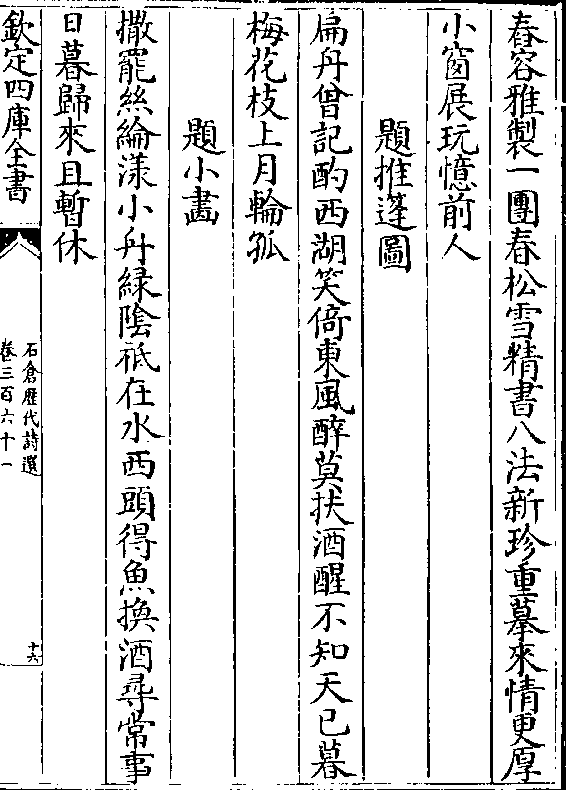 舂容雅製一團春松雪精書八法新珍重摹來情更厚
小窗展玩憶前人
題推蓬圖
扁舟曾記酌西湖笑倚東風醉莫扶酒醒不知天已暮
梅花枝上月輪孤
題小畵
撒罷絲綸漾小舟緑陰秪在水西頭得魚換酒尋常事
日暮歸來且暫休
欽定四庫全書
石倉歷代詩選
卷三百六十一
十六